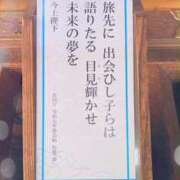 旅先に 出会ひし子らは
語りたる 目見輝かせ
未来の夢を
今上陛下